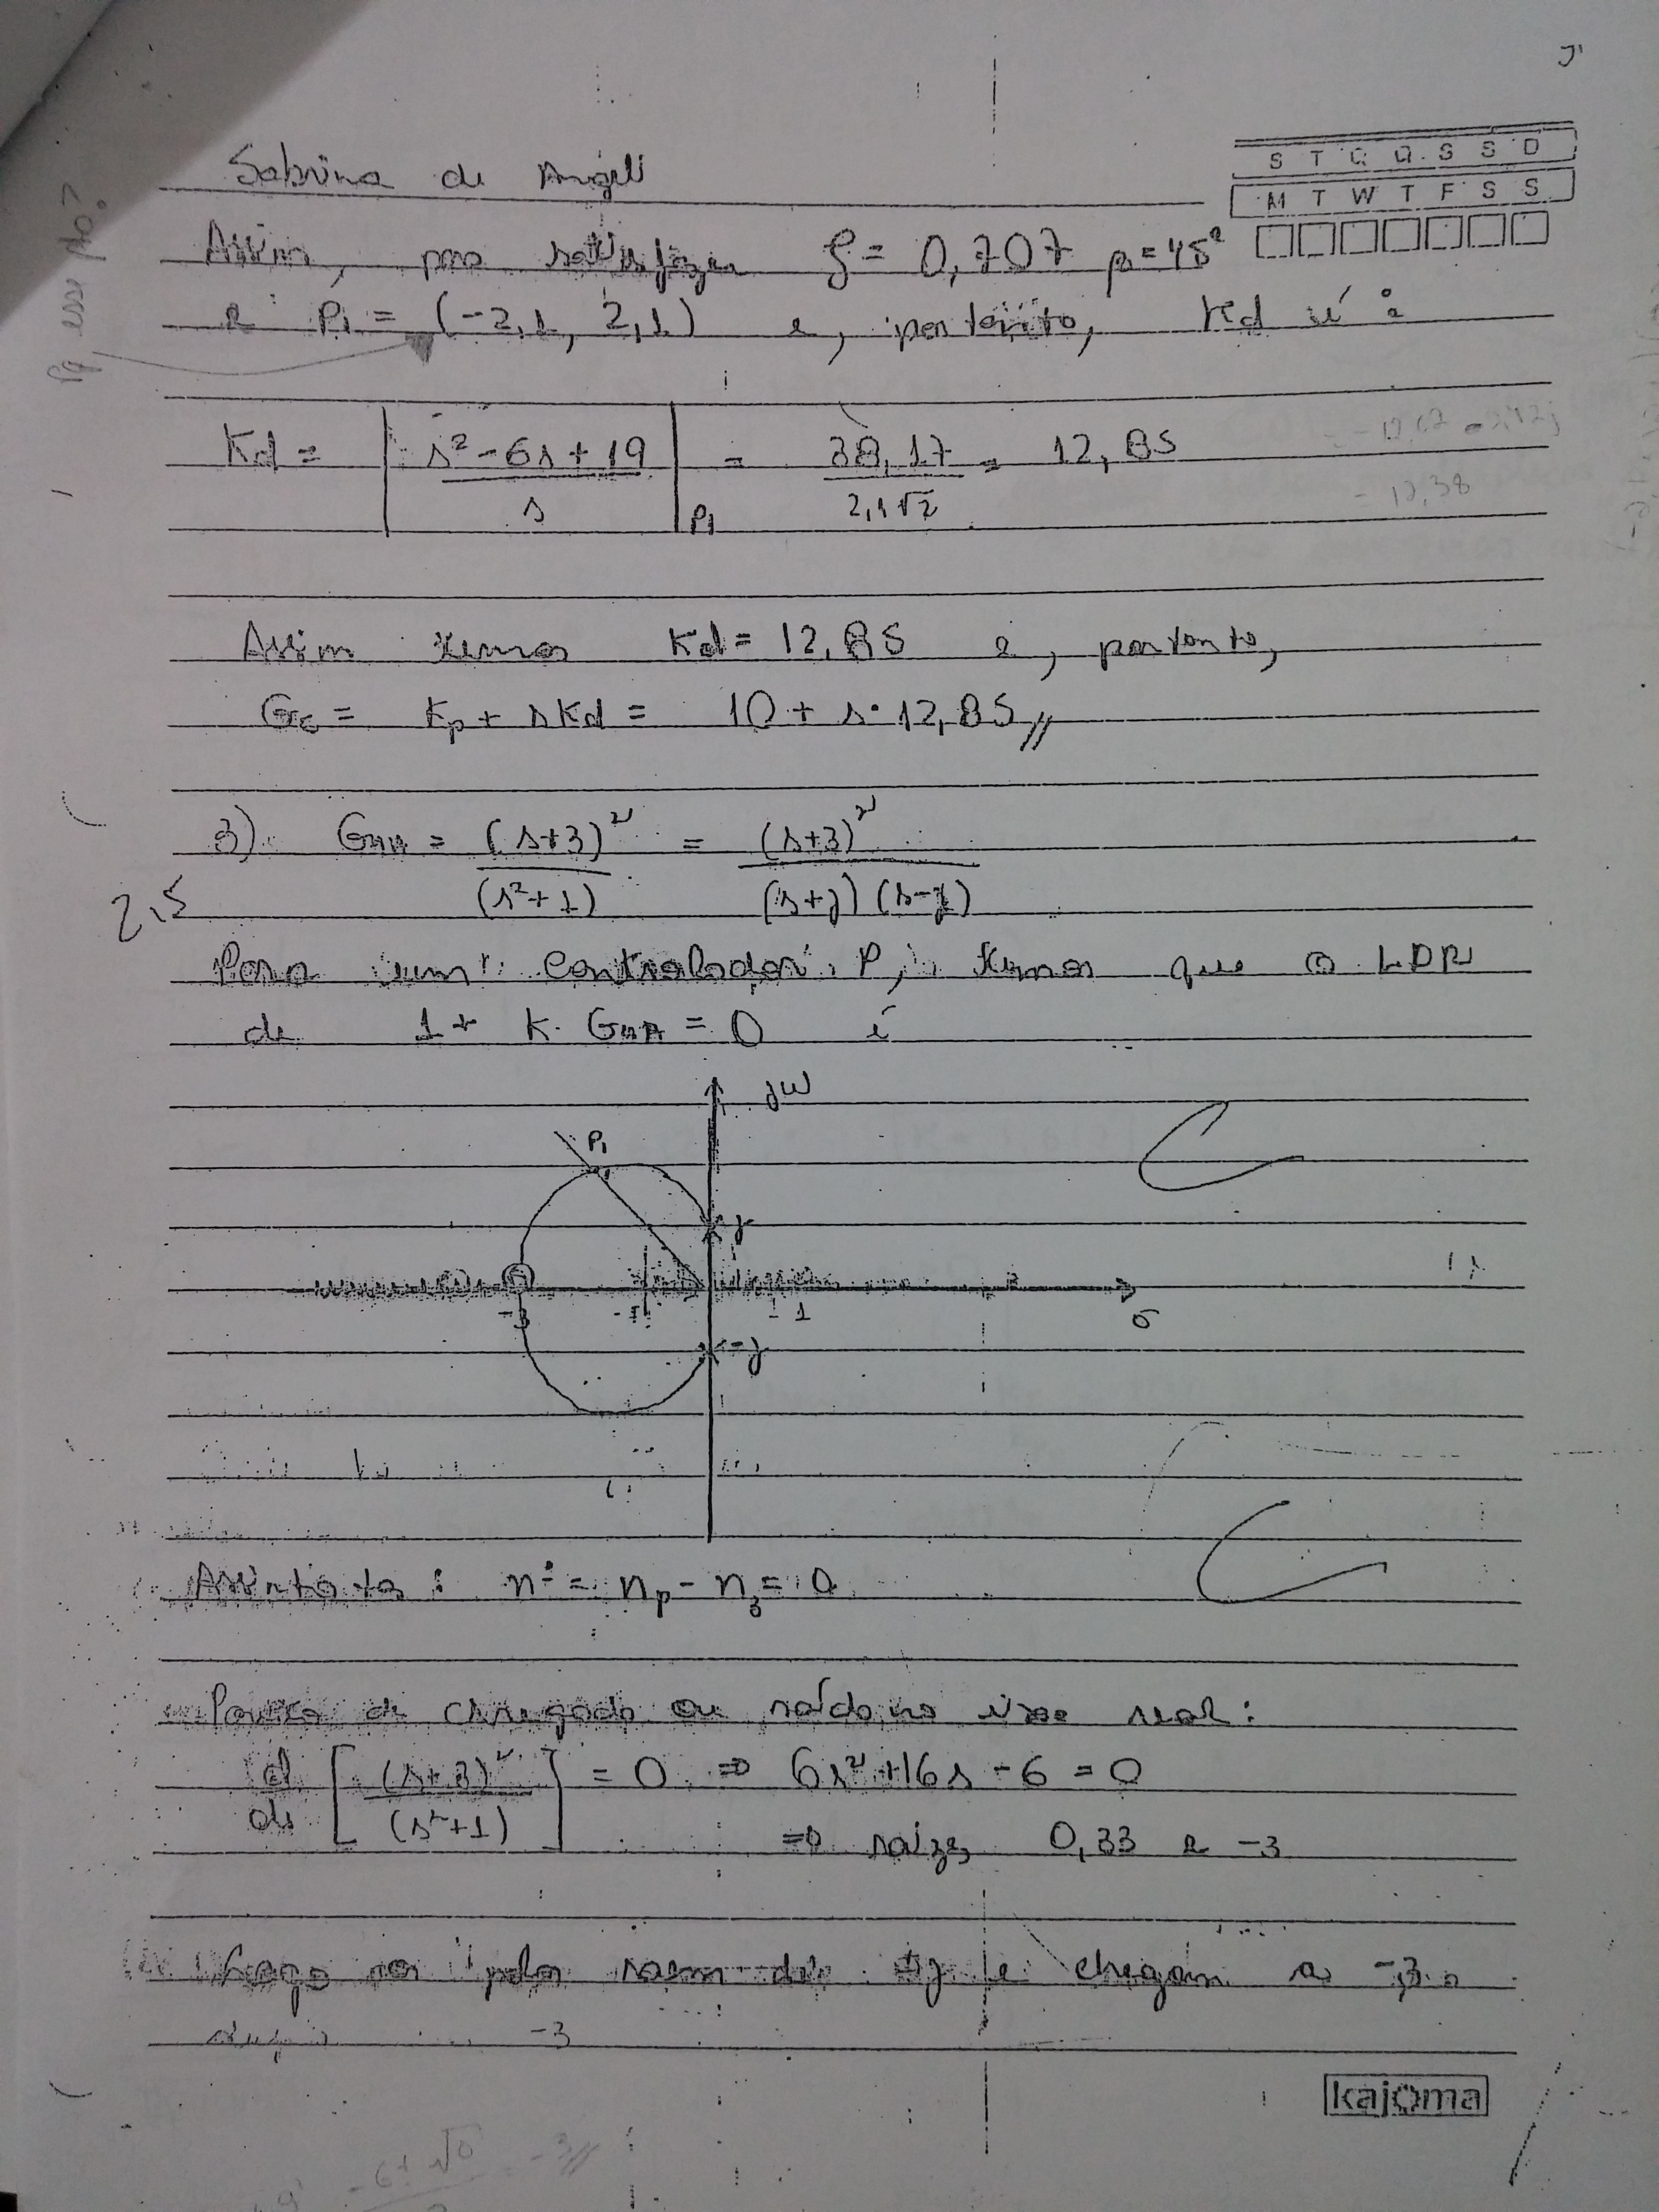 S T Q Q S S D
Sabrina de Angeli
M T W T F S S
Pq esse nº?
Assim, para satisfazer ζ = 0,707 β = 45°
e P₁ = (-2,1, 2,1) e, portanto, Kd é:
Kd = | s² - 6s + 19 / s | P₁ = 38,17 / 2,1√2 = 12,85
- 12,38
Assim temos Kd = 12,85 e, portanto,
Gc = Kp + sKd = 10 + s·12,85 //
3) GMA = (s+3)² / (s²+1) = (s+3)² / (s+j)(s-j)
2,5
Para um controlador P, temos que o LDR
de 1 + K·GMA = 0 é
jω
P₁
j
-3 -1 1 σ
-j
Assíntota: n = np - nz = 0
Pontos de chegada ou saída no eixo real:
d/ds [ (s+3)² / (s²+1) ] = 0 ⇒ 6s² + 16s - 6 = 0
⇒ raízes 0,33 e -3
Logo os polos saem de ±j e chegam a -3.
-3
kajoma
-6 ± √0 -3 //